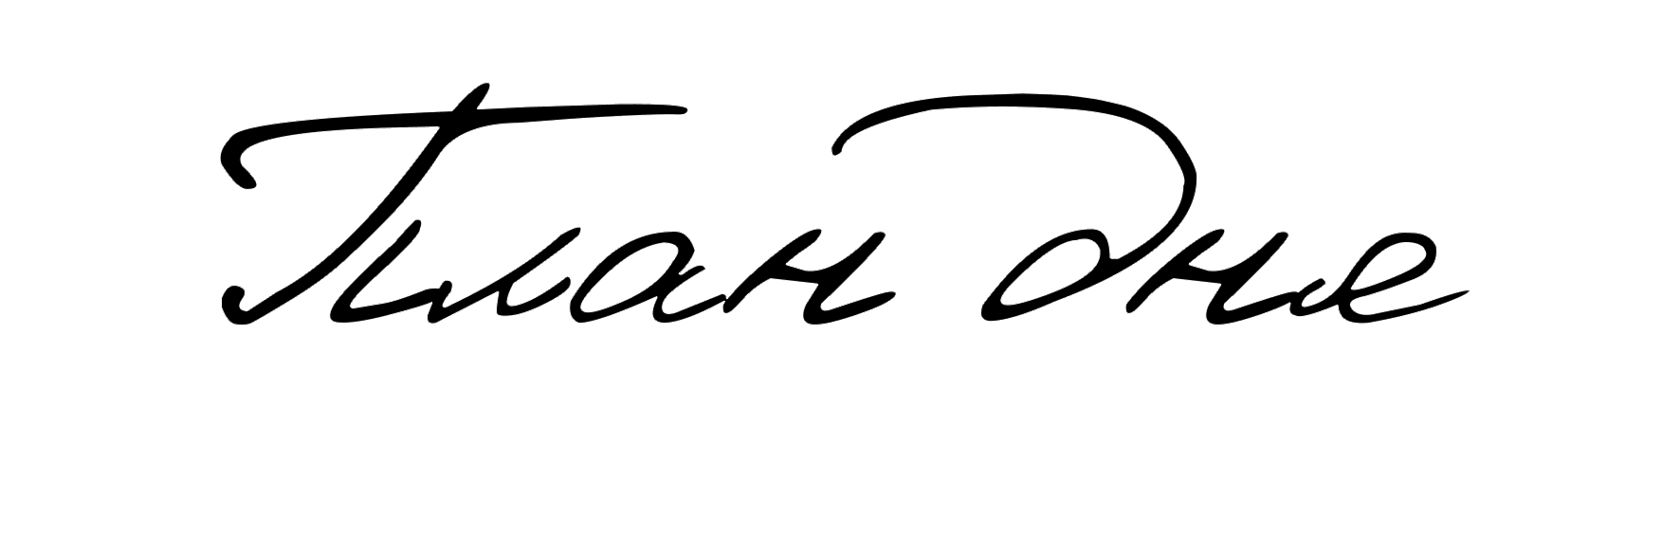 План дне